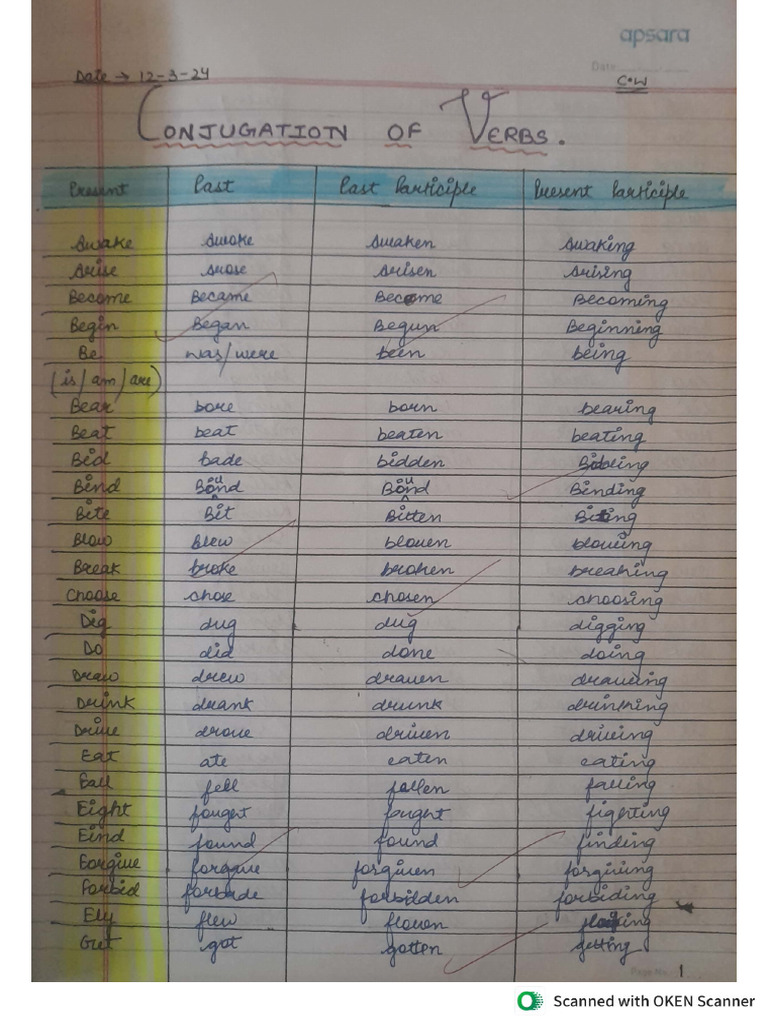 apsara
Date
Date → 12-3-24 C.W
CONJUGATION OF VERBS.
Present Past Past Participle Present Participle
Awake Awoke Awaken Awaking
Arise Arose Arisen Arising
Become Became Become Becoming
Begin Began Begun Beginning
Be was/were been being
(is/am/are)
Bear bore born bearing
Beat beat beaten beating
Bid bade bidden
Bind Bound Bound Binding
Bite Bit Bitten Biting
Blow Blew blowen blowing
Break broke broken breaking
Choose chose chosen choosing
Dig dug dug digging
Do did done doing
Draw drew drawen drawing
Drink drank drunk drinking
Drive drove driven driving
Eat ate eaten eating
Fall fell fallen falling
Fight fought fought fighting
Find found found finding
Forgive forgave forgiven forgiving
Forbid forbade forbilden forbiding
Fly flew flowen
Get got gotten getting
Page No. 1
Scanned with OKEN Scanner